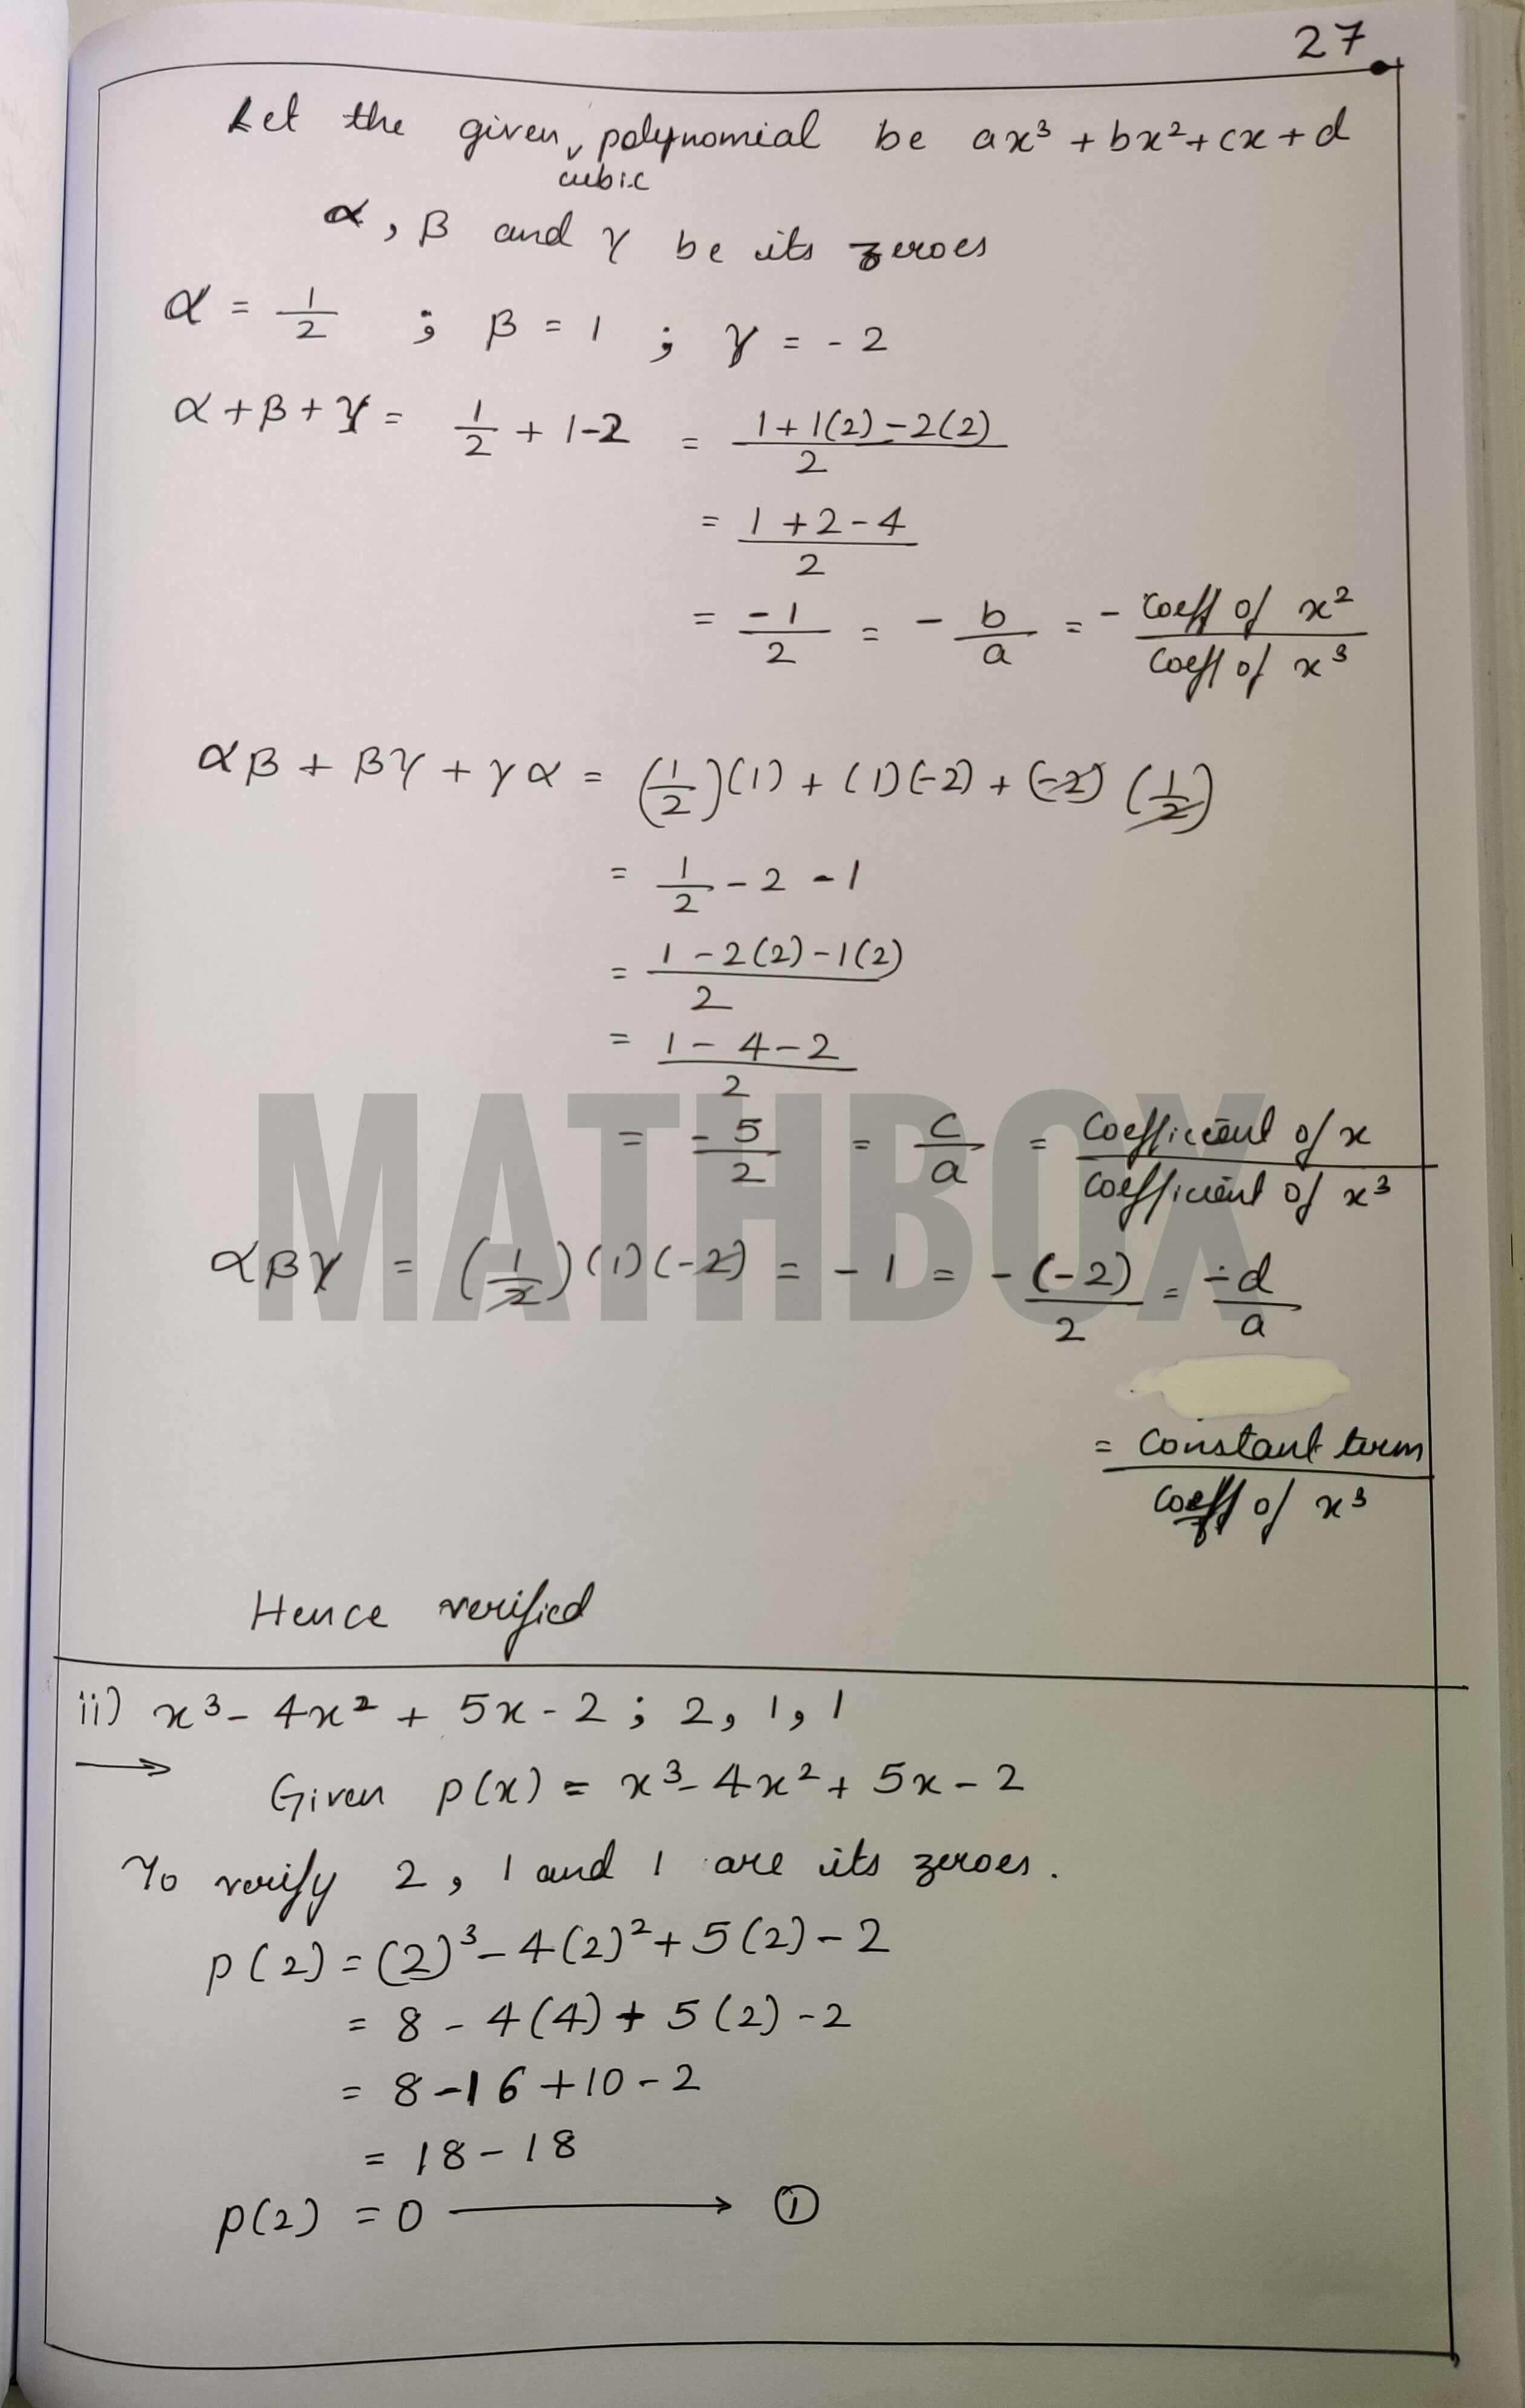 27
Let the given cubic polynomial be ax³ + bx² + cx + d
α, β and γ be its zeroes
α = 1/2 ; β = 1 ; γ = -2
α + β + γ = 1/2 + 1-2 = (1 + 1(2) - 2(2))/2
= (1 + 2 - 4)/2
= -1/2 = - b/a = - coeff of x² / coeff of x³
αβ + βγ + γα = (1/2)(1) + (1)(-2) + (-2)(1/2)
= 1/2 - 2 - 1
= (1 - 2(2) - 1(2))/2
= (1 - 4 - 2)/2
= -5/2 = c/a = coefficient of x / coefficient of x³
αβγ = (1/2)(1)(-2) = -1 = -(-2)/2 = -d/a
= constant term / coeff of x³
Hence verified
MATHBOX
ii) x³ - 4x² + 5x - 2 ; 2, 1, 1
→ Given p(x) = x³ - 4x² + 5x - 2
To verify 2, 1 and 1 are its zeroes.
p(2) = (2)³ - 4(2)² + 5(2) - 2
= 8 - 4(4) + 5(2) - 2
= 8 - 16 + 10 - 2
= 18 - 18
p(2) = 0 → ①